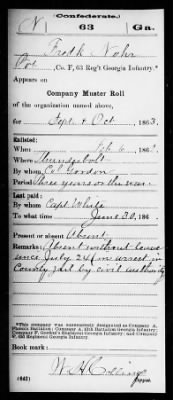 (Confederate.)
N 63 Ga.
Fredk Nohr
Pvt, Co. F, 63 Reg't Georgia Infantry.*
Appears on
Company Muster Roll
of the organization named above,
for Sept & Oct, 1863.
Enlisted:
When Feb 6, 186
Where Thunderbolt
By whom Col Gordon
Period Three years or the war
Last paid:
By whom Capt White
To what time June 30, 186
Present or absent Absent
Remarks: Absent without leave
since July 24 in arrest in
County jail by civil authority
*This company was successively designated as Company A,
Phoenix Battalion; Company A, 13th Battalion Georgia Infantry;
Company F, Gordon's Regiment Georgia Infantry; and Company
F, 63d Regiment Georgia Infantry.
Book mark:
(642) Copyist.